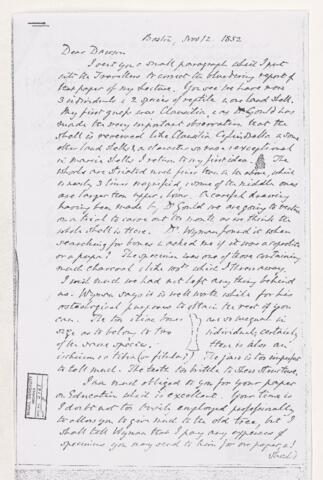 Boston, Nov 12. 1852
Dear Dawson
I sent you a small paragraph which I put
into the Travellers to correct the blundering report of
newspaper of my lecture. You see we have now
3 individuals & 2 species of reptile & one land shell.
My first guess was Clausilia, & as Dr Gould has
made the very important observation that the
shell is reversed like Clausilia & some
other land shells & a character so rare & exceptional
in marine shells I return to my first idea. The
whorls are striated much finer than in the above, which
is nearly 3 times magnified, & some of the middle ones
are larger than upper & lower. A careful drawing
having been made by Dr Gould we are going to venture
on a trial to carve out the mouth as we think the
whole shell is there. Dr. Wyman found it when
searching for bones & asked me if it was a reptile
or a pupa! The specimen was one of those containing
much charcoal & like most which I threw away.
I wish much we had not left any thing behind
us. Wyman says it is well worth while for his
osteological purposes to obtain the rest if you
can. The two bones are so unequal in
size, as to belong to two individuals, certainly
of the same species. There is also an
ischium or tibia (or fibula?) The jaw is too imperfect
to tell much. The teeth too brittle to show structure.
I am much obliged to you for your paper
on Education which is excellent. Your time is
I doubt not too busily employed professionally
to allow you to give much to the old tree, but I
shall tell Wyman that I pay any expenses of
specimens you may send to him for our paper, as I